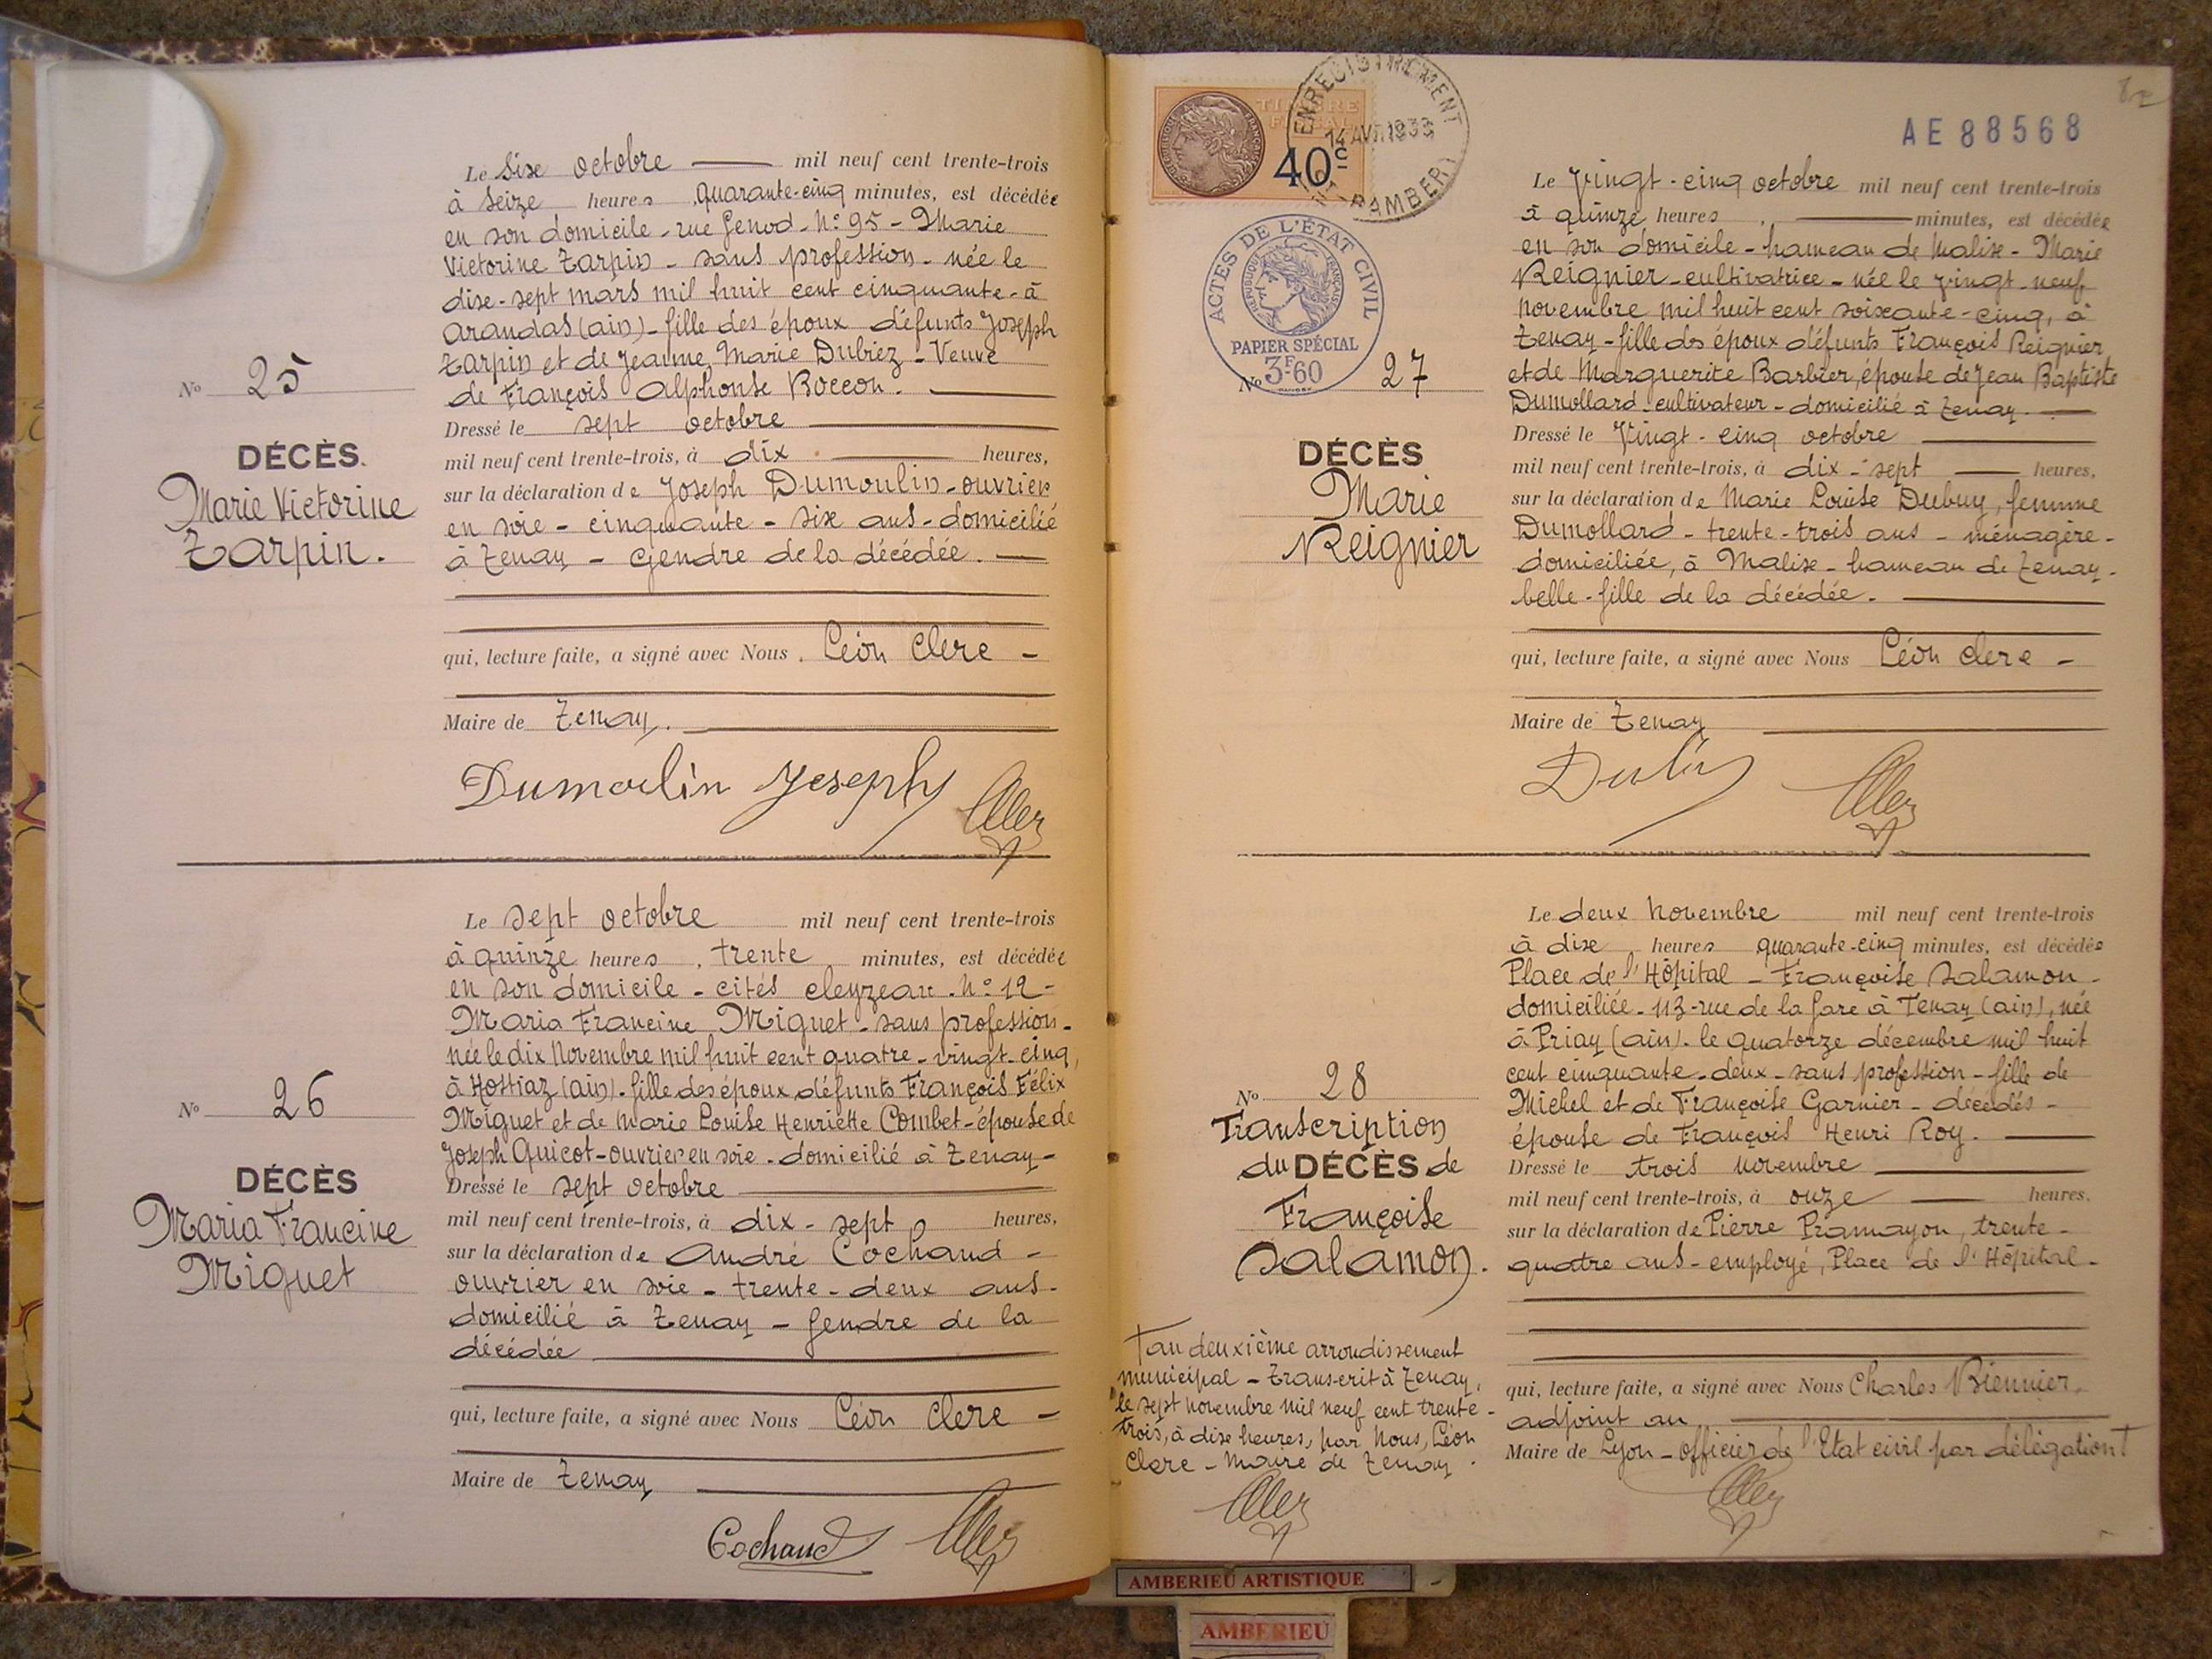 Le Six octobre mil neuf cent trente-trois
à Seize heures quarante-cinq minutes, est décédée
en son domicile - rue Genod - N° 95 - Marie
Victorine Tarpin - sans profession - née le
dix-sept mars mil huit cent cinquante - à
Arandas (ain) - fille des époux défunts Joseph
Tarpin et de Jeanne Marie Dubiez - Veuve
de François Alphonse Roccon.
Dressé le sept octobre
mil neuf cent trente-trois, à dix heures,
sur la déclaration de Joseph Dumoulin - ouvrier
en soie - cinquante - six ans - domicilié
à Tenay - Gendre de la décédée.
qui, lecture faite, a signé avec Nous, Léon Clerc -
Maire de Tenay.
Dumoulin Joseph
N° 25
DÉCÈS
Marie Victorine
Tarpin.
Le sept octobre mil neuf cent trente-trois
à quinze heures, trente minutes, est décédée
en son domicile - cités cleyzeau - N° 12 -
Maria Francine Miguet - sans profession -
née le dix Novembre mil huit cent quatre - vingt - cinq,
à Hostiaz (ain) - fille des époux défunts François Félix
Miguet et de Marie Louise Henriette Combet - épouse de
Joseph Quicot - ouvrier en soie - domicilié à Tenay -
Dressé le sept octobre
mil neuf cent trente-trois, à dix - sept heures,
sur la déclaration de André Cochaud -
ouvrier en soie - trente - deux ans -
domicilié à Tenay - gendre de la
décédée
qui, lecture faite, a signé avec Nous Léon Clerc -
Maire de Tenay
Cochaud
N° 26
DÉCÈS
Maria Francine
Miguet
TIMBRE
FISCAL
40c
ENREGISTREMENT
14 AVR 1933
AMBERI
ACTES DE L'ÉTAT CIVIL
RÉPUBLIQUE FRANÇAISE
PAPIER SPÉCIAL
3F60
AE 88568
Le Vingt - cinq octobre mil neuf cent trente-trois
à quinze heures, minutes, est décédée
en son domicile - hameau de Malix - Marie
Reignier - cultivatrice - née le vingt - neuf
novembre mil huit cent soixante - cinq, à
Tenay - fille des époux défunts François Reignier
et de Marguerite Barbier, épouse de Jean Baptiste
Dumollard - cultivateur - domicilié à Tenay.
Dressé le Vingt - cinq octobre
mil neuf cent trente-trois, à dix - sept heures,
sur la déclaration de Marie Louise Dubuy, femme
Dumollard - trente - trois ans - ménagère -
domiciliée, à Malix - hameau de Tenay -
belle - fille de la décédée.
qui, lecture faite, a signé avec Nous Léon Clerc -
Maire de Tenay
N° 27
DÉCÈS
Marie
Reignier
Le deux Novembre mil neuf cent trente-trois
à dix heures quarante-cinq minutes, est décédée
Place de l'Hôpital - Françoise Salamon -
domiciliée - 113 - rue de la Gare à Tenay (ain), née
à Priay (ain) - le quatorze décembre mil huit
cent cinquante - deux - sans profession - fille de
Michel et de Françoise Garnier - décédés -
épouse de François Henri Roy.
Dressé le trois novembre
mil neuf cent trente-trois, à onze heures,
sur la déclaration de Pierre Pramayon, trente -
quatre ans - employé, Place de l'Hôpital -
qui, lecture faite, a signé avec Nous Charles Biennier,
adjoint au
Maire de Lyon - officier de l'Etat civil par délégation T
N° 28
Transcription
du DÉCÈS de
Françoise
Salamon.
T au deuxième arrondissement
municipal - Transcrit à Tenay,
le sept novembre mil neuf cent trente -
trois, à dix heures, par Nous, Léon
Clerc - Maire de Tenay.
AMBERIEU ARTISTIQUE
AMBERIEU